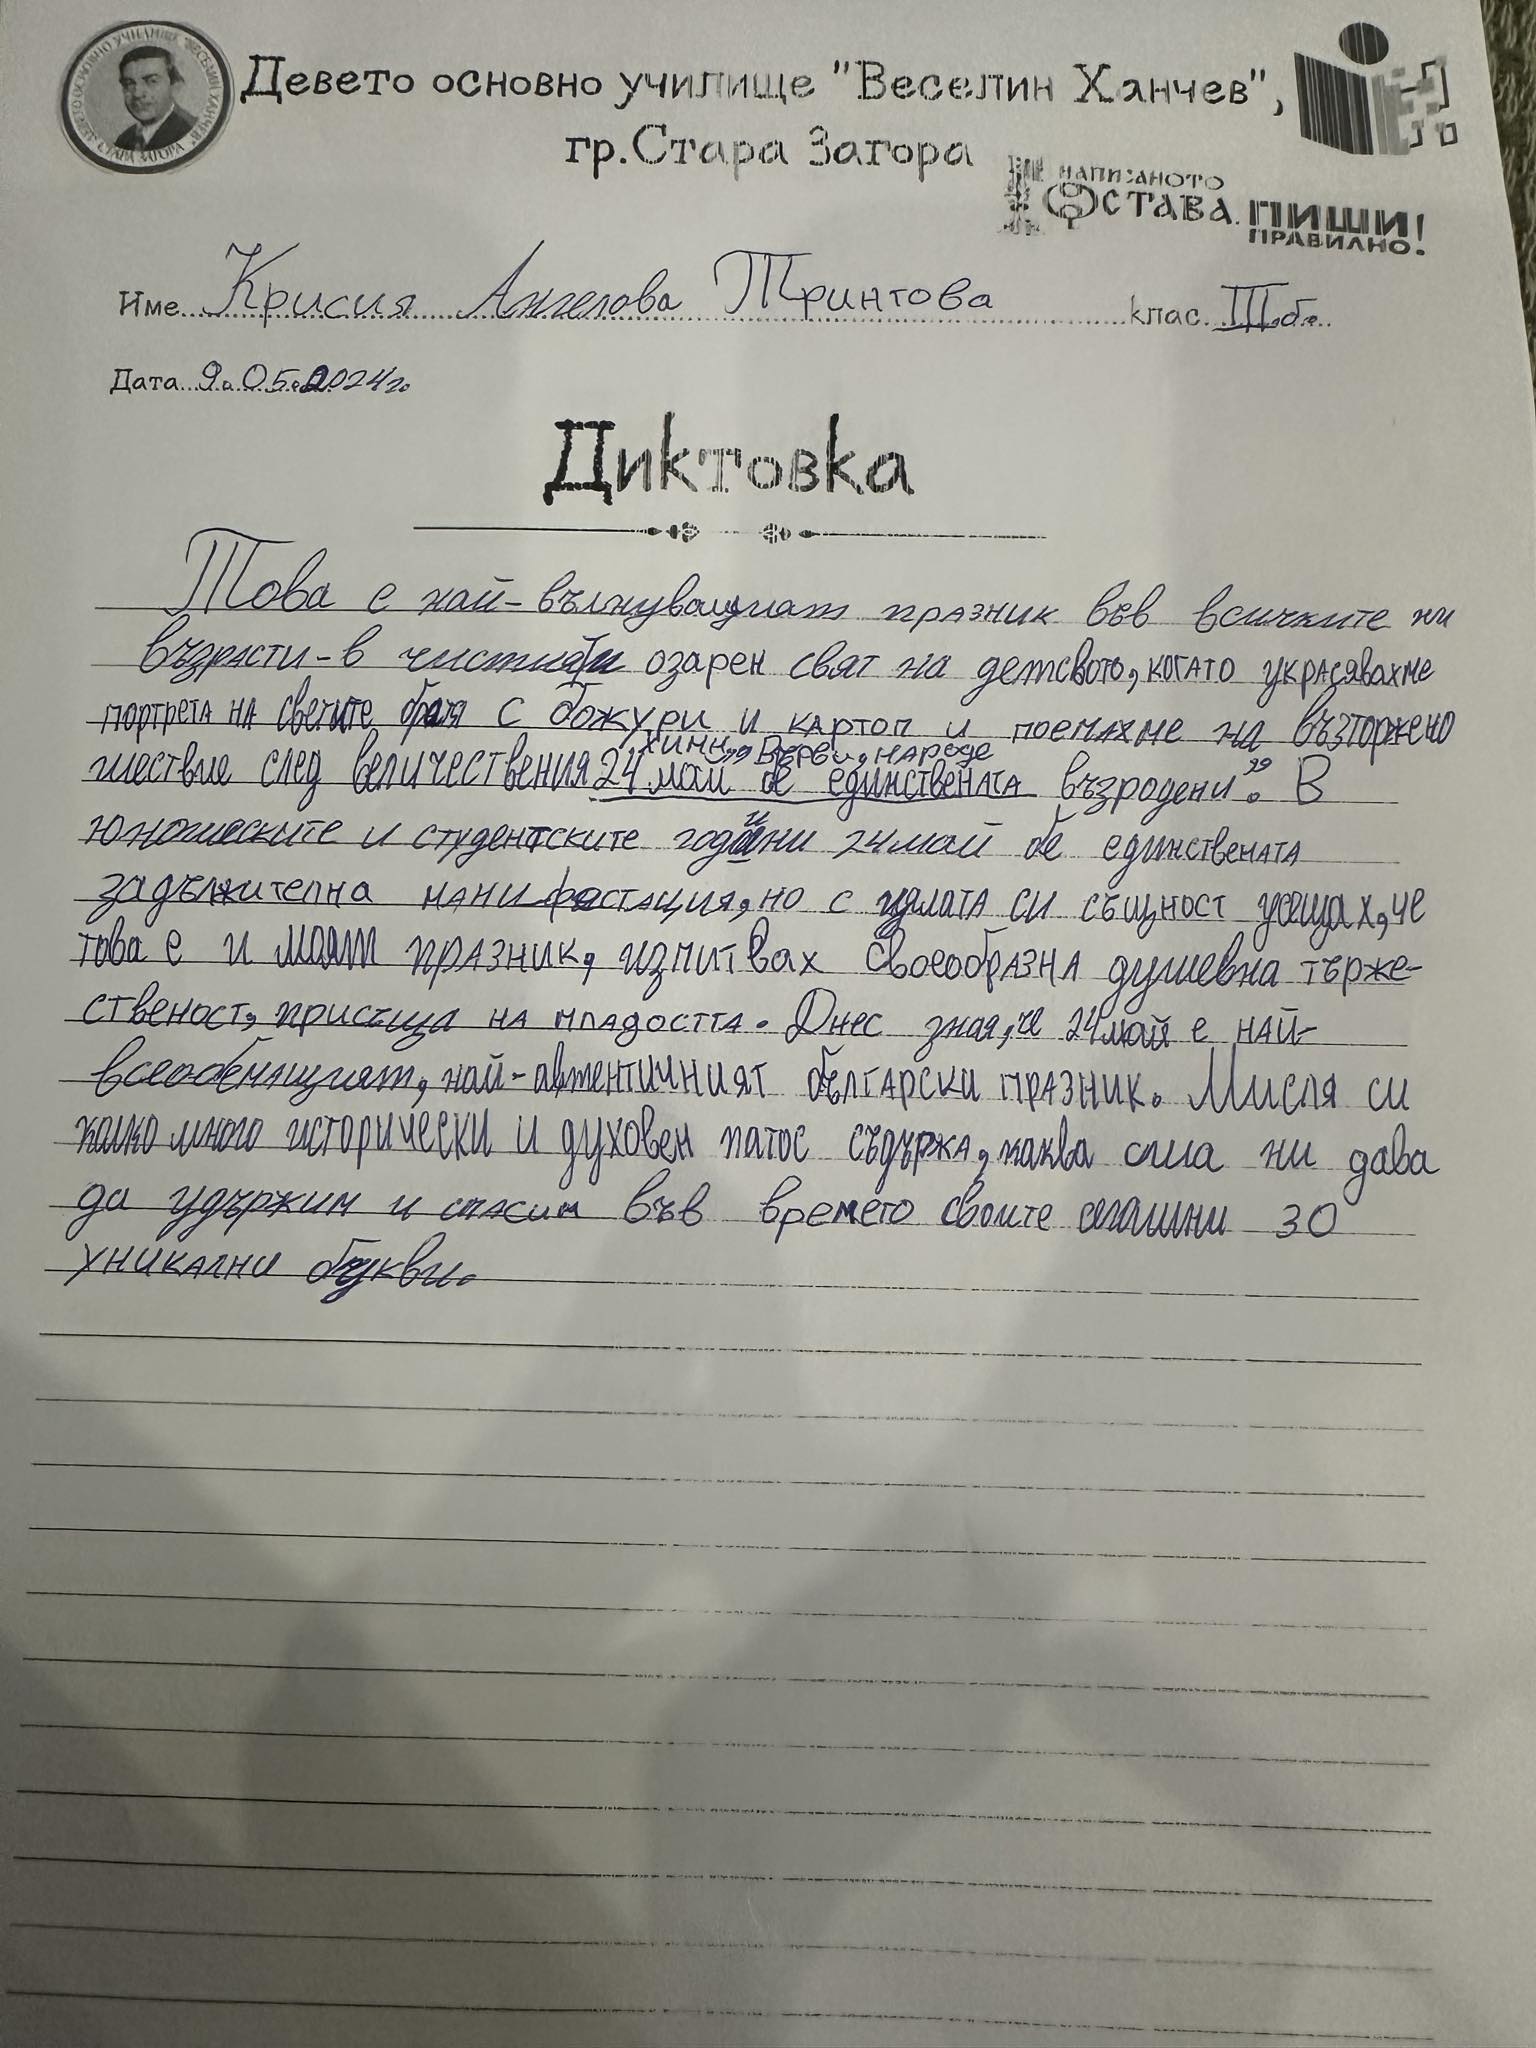 ДЕВЕТО ОСНОВНО УЧИЛИЩЕ "ВЕСЕЛИН ХАНЧЕВ"
СТАРА ЗАГОРА
Девето основно училище "Веселин Ханчев",
гр.Стара Загора
НАПИСАНОТО
ОСТАВА. ПИШИ
ПРАВИЛНО!
Име Крисия Ангелова Тринтова клас III б.
Дата 9.05.2024г.
Диктовка
Това е най-вълнуващият празник във всичките ни
възрасти-в чистия и озарен свят на детсвото, когато украсявахме
портрета на светите братя с божури и картоп и поемахме на възторжено
химн „Върви, народе
шествие след величествения 24 май бе единствената възродени". В
юношеските и студентските години 24 май бе единствената
задължителна манифестация, но с цялата си същност усещах, че
това е и моят празник, изпитвах своеобразна душевна търже-
ственост, присъща на младостта. Днес зная, че 24 май е най-
всеобемащият, най-автентичният български празник. Мисля си
колко много исторически и духовен патос съдържа, каква сила ни дава
да удържим и спасим във времето своите сегашни 30
уникални букви.